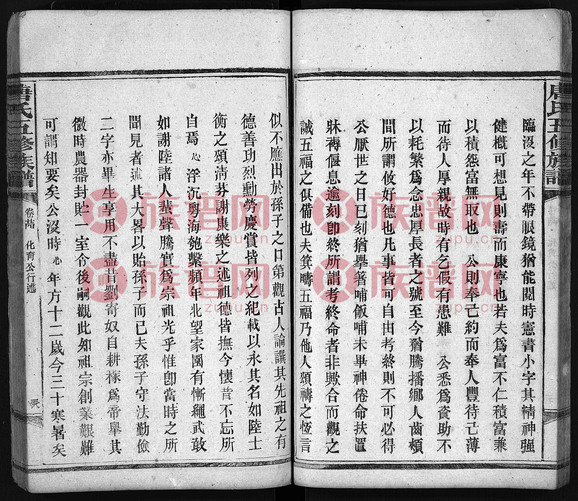 唐氏五修族譜
臨沒之年不帶眼鏡猶能閱時憲書小字其精神強
健概可想見則壽而康寧也若夫為富不仁積富兼
以積怨富無取也 公則奉己約而奉人豐待己薄
而待人厚親故時有乞假有患難 公悉為資助不
以耗繁為念忠厚長者之號至今猶騰播鄉人齒頰
間所謂攸好德也凡事皆可自由考終則不可必得
公厭世之日已刻猶哺飯哺未畢神倦命扶置
牀褥偃息逾刻即終所謂考終命者非歟合而觀之
誠五福之俱備也夫箕疇五福乃他人頌禱之恆言
似不應出於孫子之口第觀古人論譔其先祖之有
德善功烈勳勞慶賞皆列之紀載以永其名如陸士
衡之頌清芬謝康樂之述祖德皆撫今懷昔不忘所
自焉 心浮沉粵海匏繫頻年北望家園有慚繩武敢
如謝陸諸人蜚聲騰實為崇祖光乎惟即當時之所
聞見者述其大畧以貽孫子而已夫孫子守法勤儉
二字亦畢生善用不盡昔劉寄奴自耕稼為帝舉其
微時農器封貯一室令後嗣觀此知祖宗創業艱難
可謂知要矣公沒時 心年方十二歲今三十寒暑矣
唐氏五修族譜
化育公行述
族譜网
zupu.cn